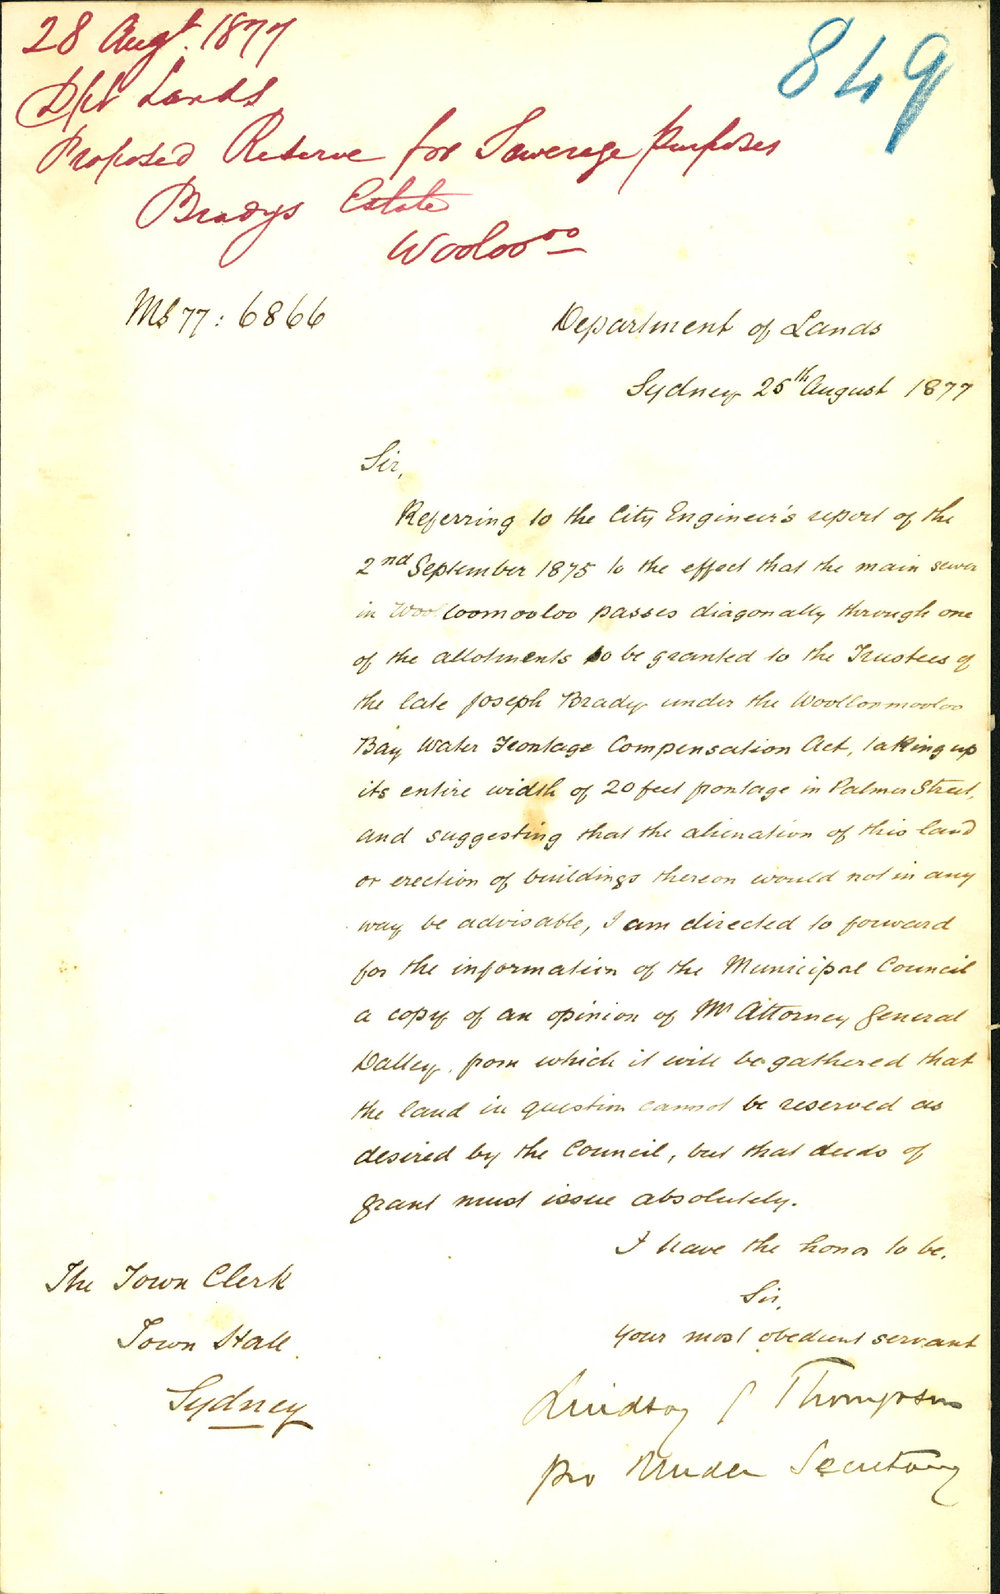 28 Augt. 1877
849
Dpt Lands
Proposed Reserve for Sewerage purposes
Bradys Estate
Wooloooo
MS 77: 6866
Department of Lands
Sydney 25th August 1877
Sir,
Referring to the City Engineer's report of the
2nd September 1875 to the effect that the main sewer
in Woolloomooloo passes diagonally through one
of the allotments to be granted to the Trustees of
the late Joseph Brady under the Woolloomooloo
Bay Water Frontage Compensation Act, taking up
its entire width of 20 feet frontage in Palmer Street,
and suggesting that the alienation of this land
or erection of buildings thereon would not in any
way be advisable, I am directed to forward
for the information of the Municipal Council
a copy of an opinion of Mr Attorney General
Dalley, from which it will be gathered that
the land in question cannot be reserved as
desired by the Council, but that deeds of
grant must issue absolutely.
I have the honor to be,
Sir,
Your most obedient servant
Lindsay J Thompson
pro Under Secretary
The Town Clerk
Town Hall
Sydney